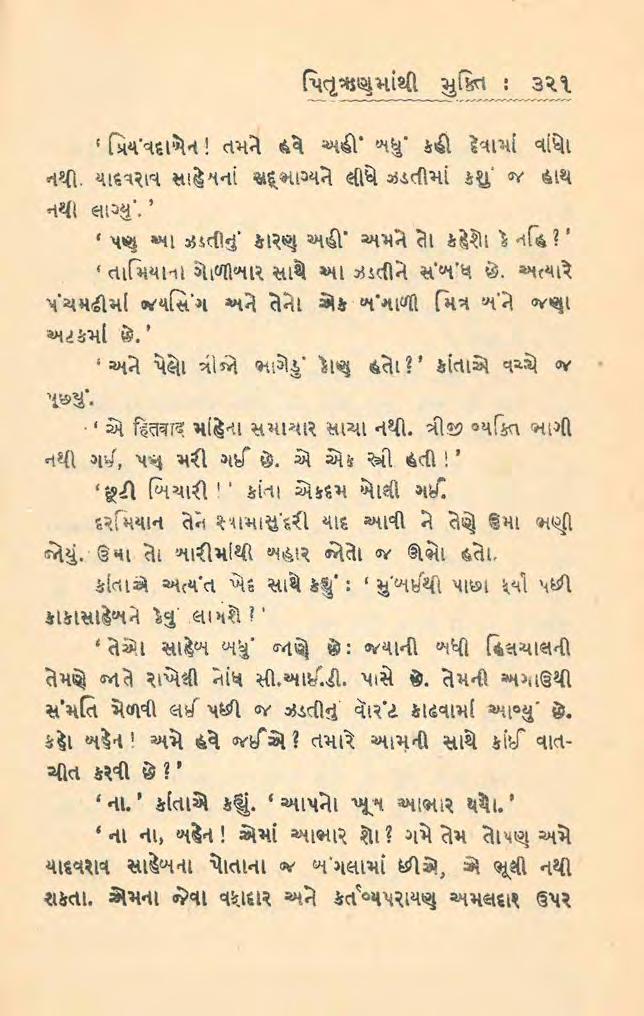 પિતૃઋણમાંથી મુક્તિ : ૩૨૧
‘ પ્રિયંવદાબેન! તમને હવે અહીં બધું કહી દેવામાં વાંધો
નથી. યાદવરાવ સાહેબનાં સદ્ભાગ્યને લીધે ઝડતીમાં કશું જ હાથ
નથી લાગ્યું. ’
‘ પણ આ ઝડતીનું કારણ અહીં અમને તો કહેશો કે નહિ ? ’
‘ તામિયાના ગોળીબાર સાથે આ ઝડતીને સંબંધ છે. અત્યારે
પંચમઢીમાં જયસિંગ અને તેનો એક બંગાળી મિત્ર બંને જણા
અટકમાં છે. ’
‘ અને પેલો ત્રીજો ભાગેડુ કોણ હતો ? ’ કાંતાએ વચ્ચે જ
પૂછ્યું.
‘ એ हितवाद માંહેના સમાચાર સાચા નથી. ત્રીજી વ્યક્તિ ભાગી
નથી ગઈ, પણ મરી ગઈ છે. એ એક સ્ત્રી હતી ! ’
‘ છૂટી બિચારી ! ’ કાંતા એકદમ બોલી ગઈ.
દરમિયાન તેને શ્યામાસુંદરી યાદ આવી ને તેણે ઉમા ભણી
જોયું. ઉમા તો બારીમાંથી બહાર જોતો જ ઊભો હતો.
કાંતાએ અત્યંત ખેદ સાથે કહ્યું : ‘ મુંબઈથી પાછા ફર્યા પછી
કાકાસાહેબને કેવું લાગશે ? ’
‘ તેઓ સાહેબ બધું જાણે છે : જયાની બધી હિલચાલની
તેમણે જાતે રાખેલી નોંધ સી.આઈ.ડી. પાસે છે. તેમની અગાઉથી
સંમતિ મેળવી લઈ પછી જ ઝડતીનું વૉરંટ કાઢવામાં આવ્યું છે.
કહો બહેન ! અમે હવે જઈએ ? તમારે આમની સાથે કાંઈ વાત-
ચીત કરવી છે ? ’
‘ ના. ’ કાંતાએ કહ્યું. ‘ આપનો ખૂબ આભાર થયો. ’
‘ ના ના, બહેન ! એમાં આભાર શો ? ગમે તેમ તોપણ અમે
યાદવરાવ સાહેબના પોતાના જ બંગલામાં છીએ, એ ભૂલી નથી
શકતા. એમના જેવા વફાદાર અને કર્તવ્યપરાયણ અમલદાર ઉપર